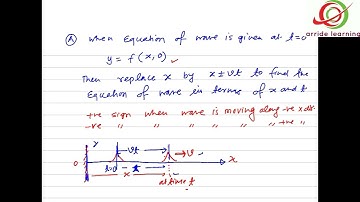 arride learning
(A) When Equation of wave is given at t=0
y = f(x,0)
Then replace x by x±vt to find the
Equation of wave in terms of x and t
+ve sign when wave is moving along -ve x dirn
-ve " " " " " " +ve "
y
vt
→v
0
t=0
x
x
at time t